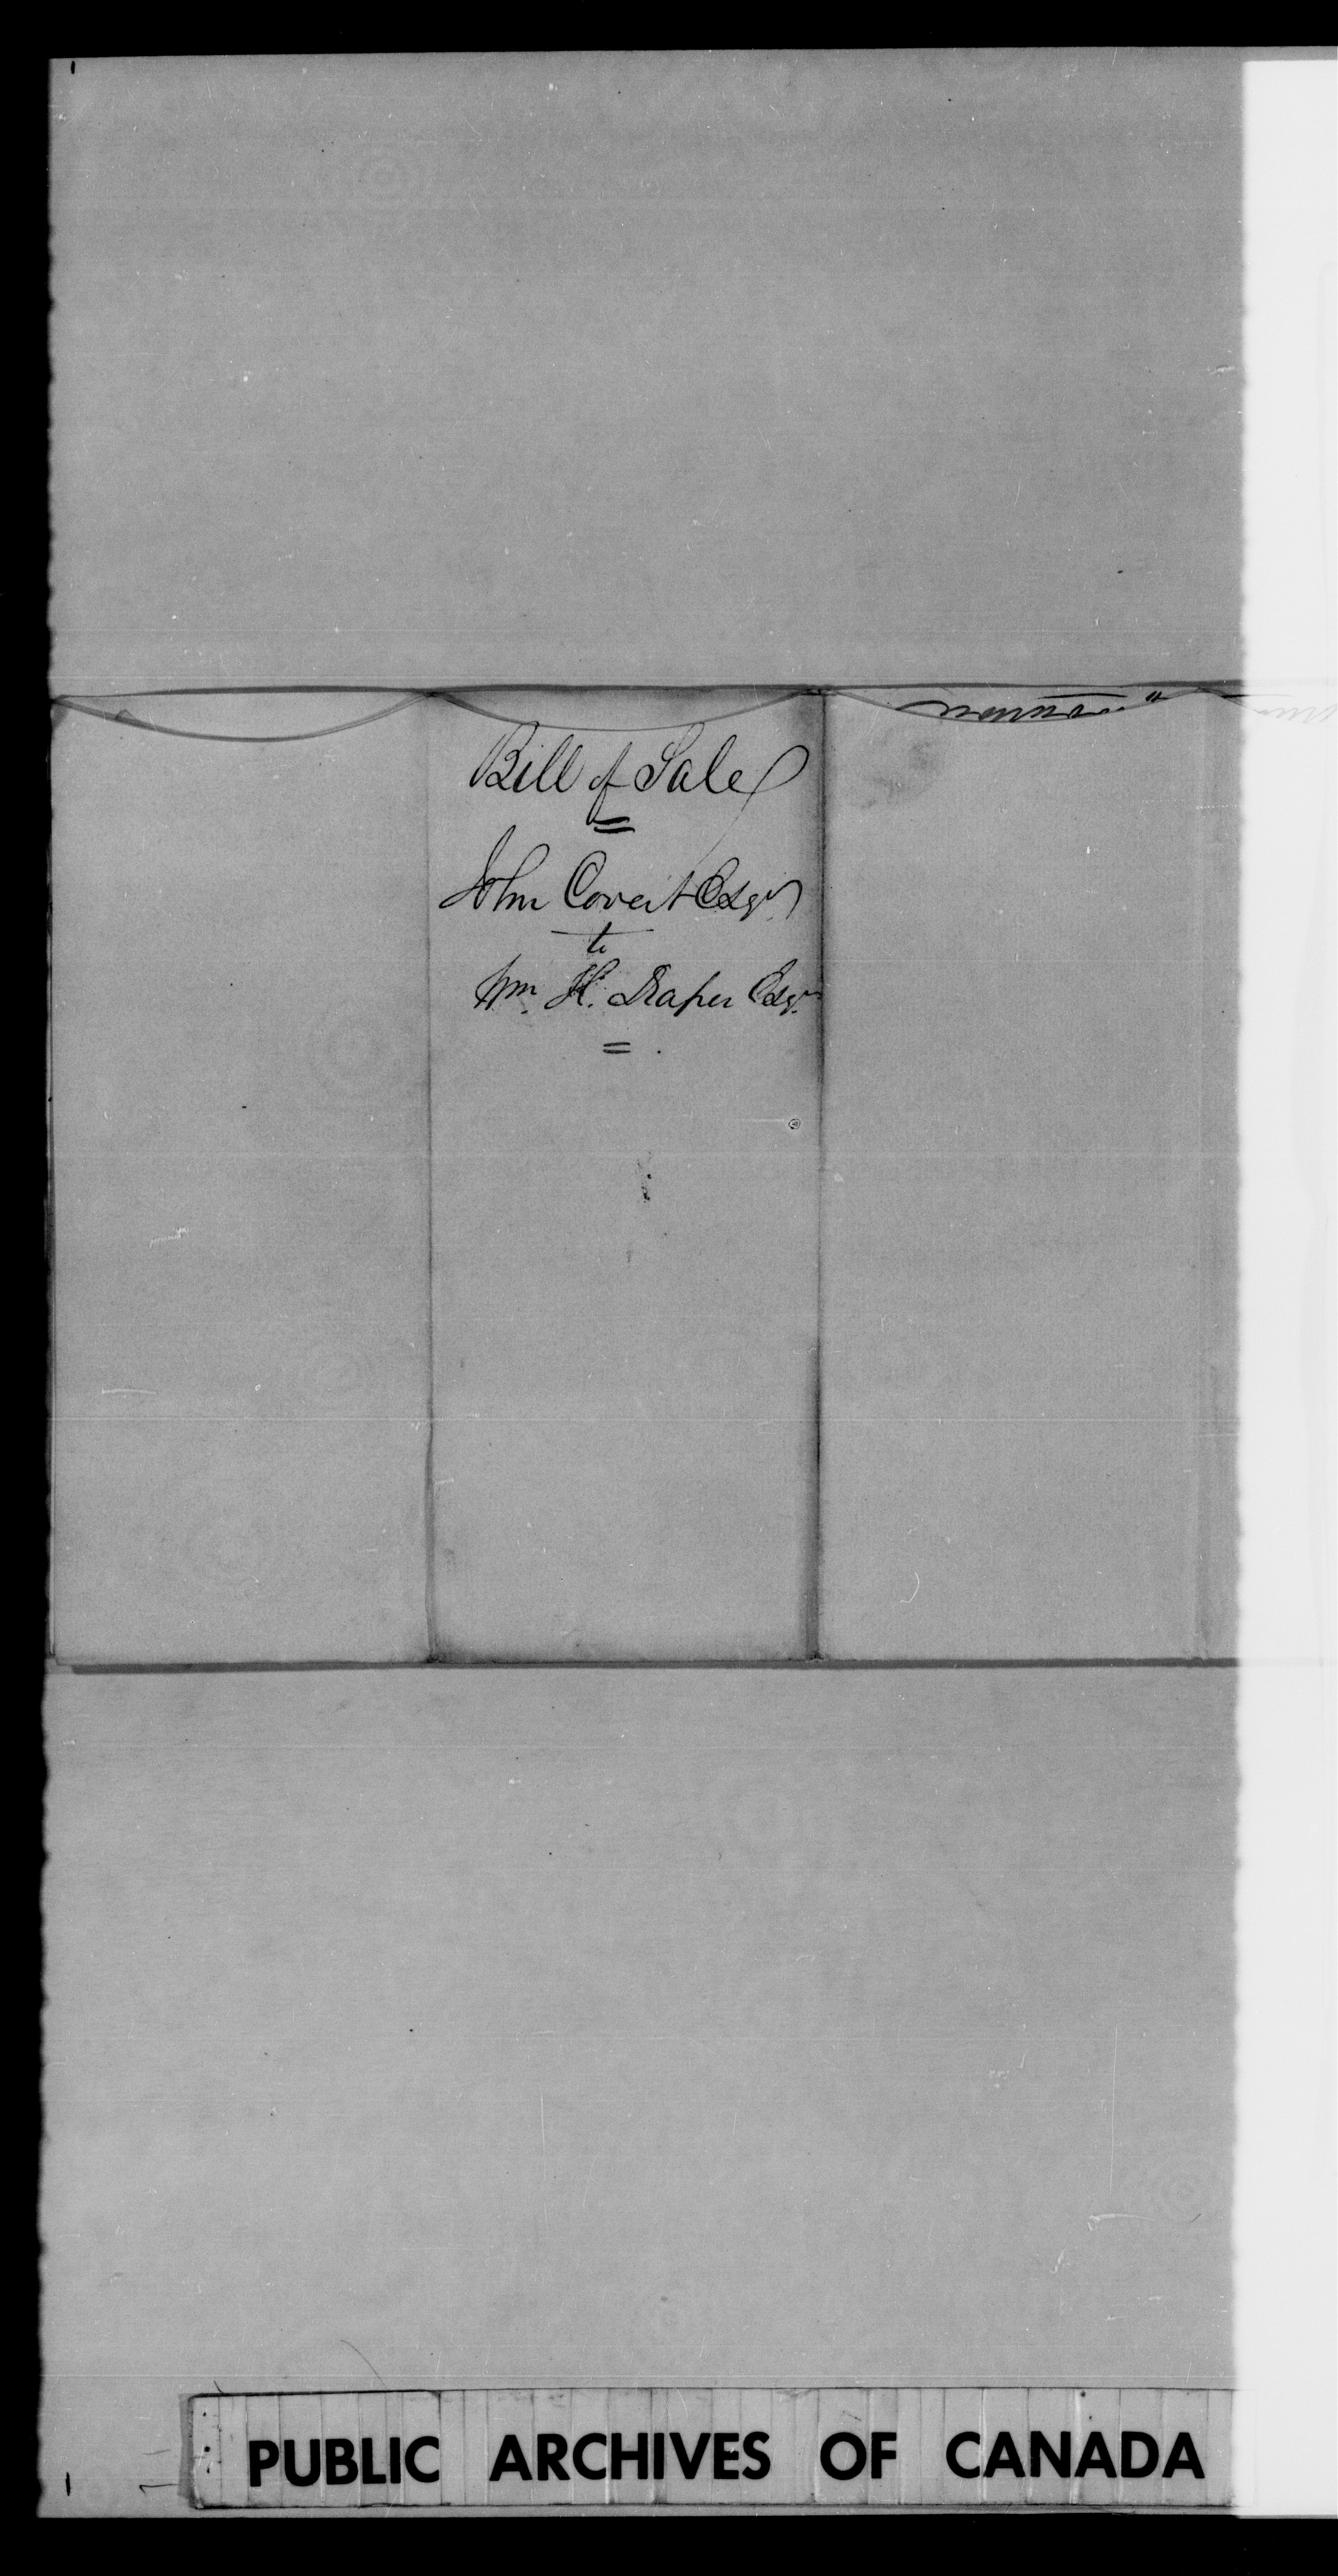 Bill of Sale
John Covert Esqr
to
Wm. H. Draper Esqr.
PUBLIC ARCHIVES OF CANADA